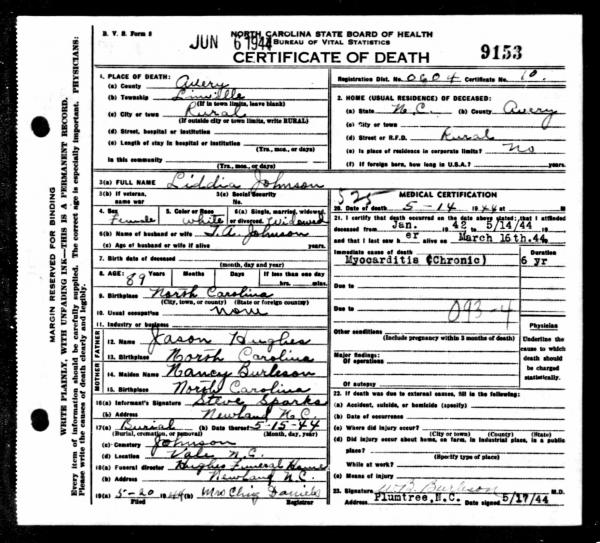 B. V. S. Form 8
NORTH CAROLINA STATE BOARD OF HEALTH
JUN 6 1944 BUREAU OF VITAL STATISTICS
CERTIFICATE OF DEATH
9153
Registration Dist. No. 0604 Certificate No. 10.
1. PLACE OF DEATH:
(a) County Avery
(b) Township Linville
(If in town limits, leave blank)
(c) City or town Rural
(If outside city or town limits, write RURAL)
(d) Street, hospital or institution
(e) Length of stay in hospital or institution
(Yrs., mos., or days)
In this community
(Yrs., mos., or days)
2. HOME (USUAL RESIDENCE) OF DECEASED:
(a) State N.C. (b) County Avery
(c) City or town
(d) Street or R.F.D. Rural
(e) Is place of residence in corporate limits? No
(f) If foreign born, how long in U.S.A.?
3(a) FULL NAME Liddia Johnson
3(b) If veteran, name war
3(c) Social Security No.
4. Sex Female
5. Color or Race White
6(a) Single, married, widowed, or divorced. Widowed
6(b) Name of husband or wife T.A. Johnson
6(c) Age of husband or wife if alive years
7. Birth date of deceased
(month, day and year)
8. AGE: Years 89 Months Days If less than one day hrs. min.
9. Birthplace North Carolina
(City, town, or county) (State or foreign country)
10. Usual occupation None
11. Industry or business
FATHER
12. Name Jason Hughes
13. Birthplace North Carolina
MOTHER
14. Maiden Name Nancy Burleson
15. Birthplace North Carolina
16(a) Informant's Signature Steve Sparks
(b) Address Newland N.C.
17(a) Burial (b) Date thereof 5-15-44
(Burial, cremation, or removal) (Month, day, year)
(c) Cemetery Johnson
(d) Location Vale N.C.
18(a) Funeral director Hughes Funeral Home
(b) Address Newland N.C.
19(a) 5-20 1944 (b) Mrs Chig Daniels
Filed Registrar
525 MEDICAL CERTIFICATION
20. Date of death 5-14 1944 at M
21. I certify that death occurred on the date above stated; that I attended
deceased from Jan. 1942 to 5/14/44
and that I last saw her alive on March 16th.44
Immediate cause of death Duration
Myocarditis (Chronic) 6 yr
Due to
Due to 093-4
Other conditions
(Include pregnancy within 3 months of death)
Major findings:
Of operations
Of autopsy
Physician
Underline the cause to which death should be charged statistically.
22. If death was due to external causes, fill in the following:
(a) Accident, suicide, or homicide (specify)
(b) Date of occurrence
(c) Where did injury occur?
(City or town) (County) (State)
(d) Did injury occur about home, on farm, in industrial place, in a public place?
(Specify type of place)
While at work?
(e) Means of injury
23. Signature W.B. Burleson M.D.
Address Plumtree, N.C. Date signed 5/17/44
MARGIN RESERVED FOR BINDING
WRITE PLAINLY, WITH UNFADING INK—THIS IS A PERMANENT RECORD.
Every item of information should be carefully supplied. The correct age is especially important. PHYSICIANS:
Please write the causes of death clearly and legibly.